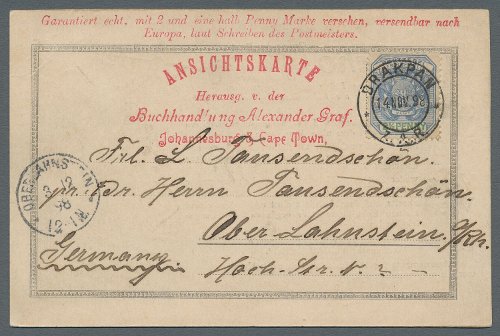 Garantiert echt, mit 2 und eine halb Penny Marke versehen, versendbar nach
Europa, laut Schreiben des Postmeisters.
ANSICHTSKARTE
Herausg. v. der
Buchhandlung Alexander Graf.
Johannesburg & Cape Town.
DRAKPAN
14 NOV 98
Z.A.R.
Frl. L. Tausendschön.
pr. Dr. Herrn Tausendschön.
Ober Lahnstein a/Rh.
Germany
Hoch-Str. N. 2
OBERLAHNSTEIN
8 12
98
12-1 N.